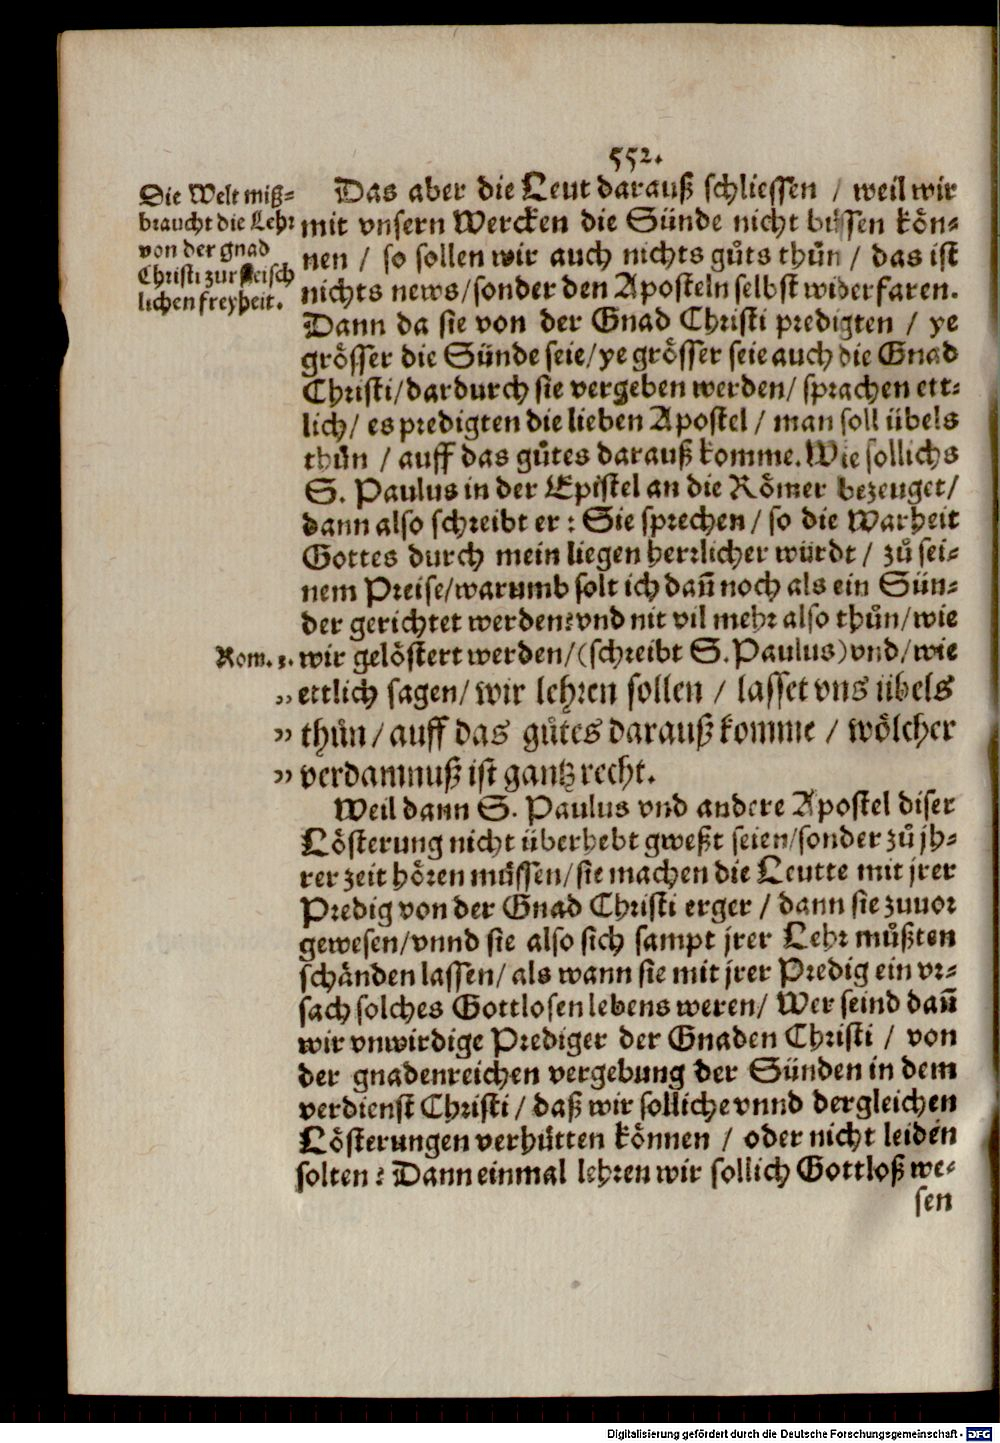 552.
Die Welt miß-
braucht die Lehr
von der gnad
Christi zur fleisch
lichen freyheit.
Das aber die Leut darauß schliessen / weil wir
mit vnsern Wercken die Sünde nicht büssen kön-
nen / so sollen wir auch nichts gůts thůn / das ist
nichts news/sonder den Aposteln selbst widerfaren.
Dann da sie von der Gnad Christi predigten / ye
grösser die Sünde seie/ye grösser seie auch die Gnad
Christi/dardurch sie vergeben werden/ sprachen ett-
lich/ es predigten die lieben Apostel / man soll übels
thůn / auff das gůtes darauß komme. Wie sollichs
S. Paulus in der Epistel an die Römer bezeuget/
dann also schreibt er: Sie sprechen / so die Warheit
Gottes durch mein liegen herrlicher würdt / zů sei-
nem Preise/warumb solt ich dañ noch als ein Sün-
der gerichtet werden? vnd nit vil mehr also thůn/wie
Rom. 3. wir gelöstert werden/(schreibt S. Paulus) vnd/wie
„ ettlich sagen/ wir lehren sollen / lasset vns übels
„ thůn/ auff das gůtes darauß komme / wölcher
„ verdamnuß ist gantz recht.
Weil dann S. Paulus vnd andere Apostel diser
Lösterung nicht überhebt gweßt seien/sonder zů jh-
rer zeit hören müssen/sie machen die Leutte mit jrer
Predig von der Gnad Christi erger / dann sie zuuor
gewesen/vnnd sie also sich sampt jrer Lehr můßten
schänden lassen/ als wann sie mit jrer Predig ein vr-
sach solches Gottlosen lebens weren/ Wer seind dañ
wir vnwirdige Prediger der Gnaden Christi / von
der gnadenreichen vergebung der Sünden in dem
verdienst Christi / daß wir solliche vnnd dergleichen
Lösterungen verhütten können / oder nicht leiden
solten? Dann einmal lehren wir sollich Gottloß we-
sen
Digitalisierung gefördert durch die Deutsche Forschungsgemeinschaft - DFG